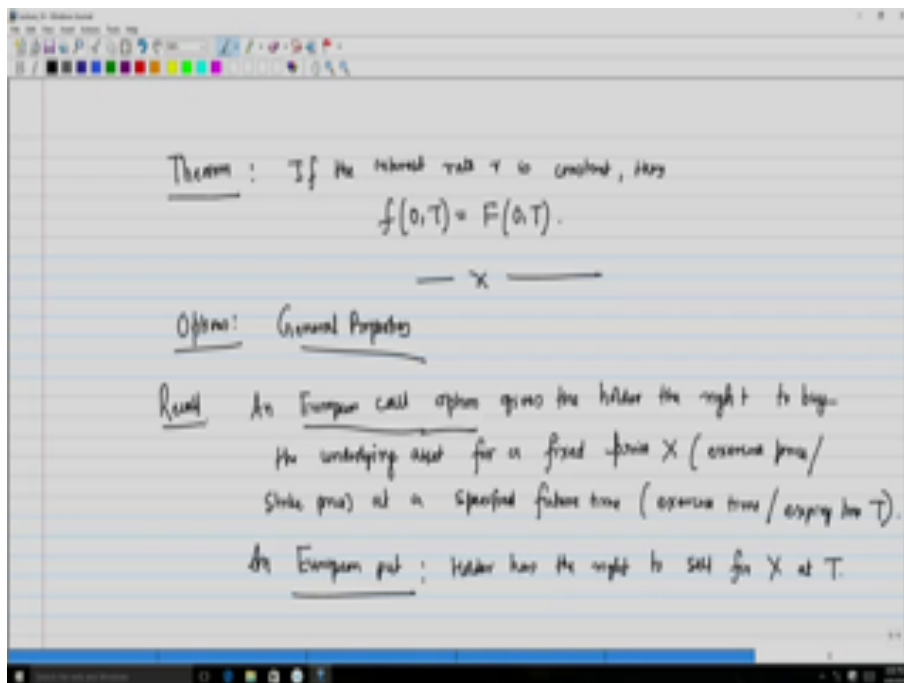 Theorem : If the interest rate r is constant, then
f(0,T) = F(0,T).
— x —
Options: General Properties
Recall An European call option gives the holder the right to buy
the underlying asset for a fixed price X (exercise price/
strike price) at a specified future time (exercise time/expiry time T).
An European put : Holder has the right to sell for X at T.